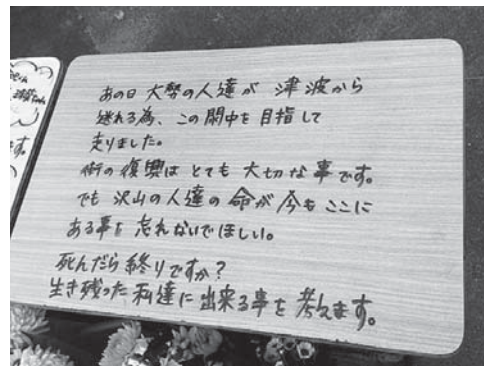 あの日 大勢の人達が 津波から
逃れる為、この閖中を目指して
走りました。
街の復興は とても 大切な事です。
でも 沢山の人達の 命が 今も ここに
ある事を 忘れないでほしい。
死んだら終りですか？
生き残った私達に出来る事を 考えます。